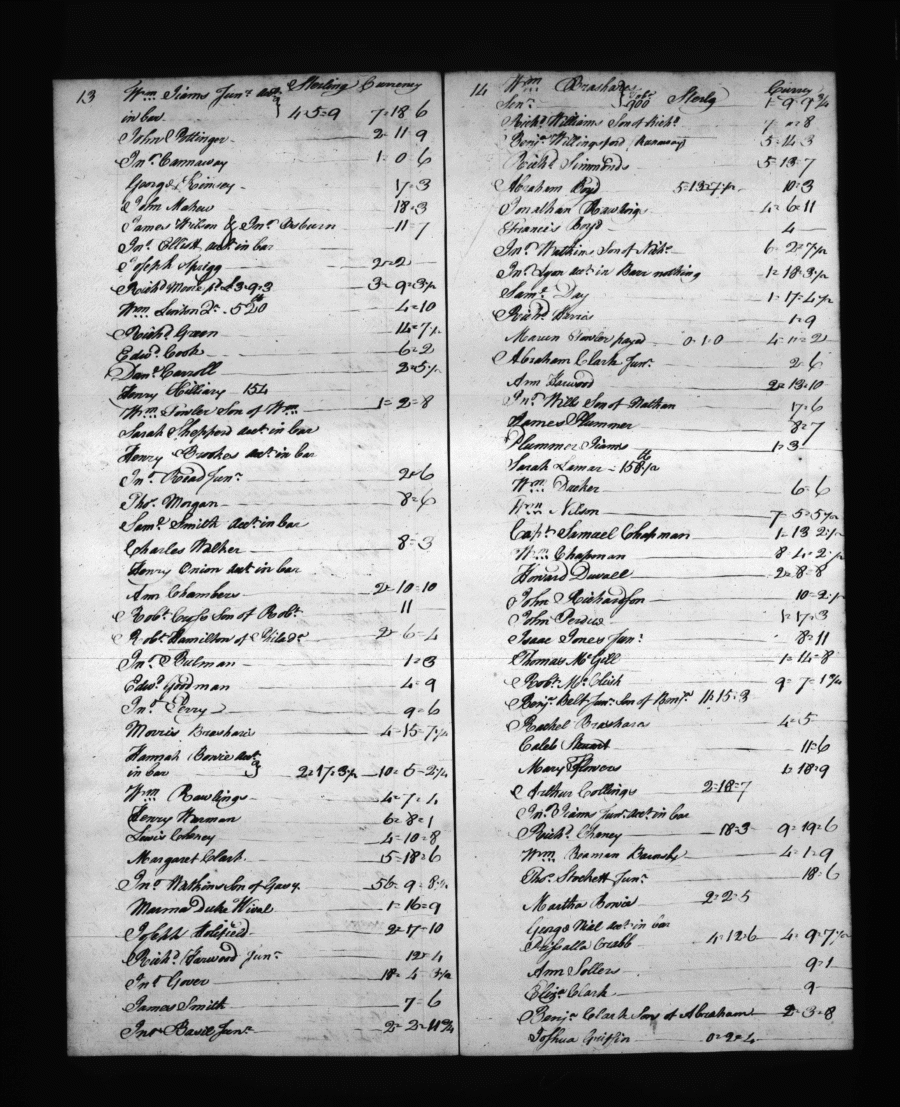 13 Wm Iiams Junr acct Sterling Currency
in bar 4-5-9 7=18 6
John Pottinger 2=11=9
Jnr Cannaway 1=0=6
George 17=3
John Mahew 18=3
James Wilson & Jnr Osburn 11=7
Jnr Elliott acct in bar
Joseph Sprigg 2=2
Richd More 3-9-3 3=9=3
Wm Linton Dr 520 4=10
Richd Green 14=7½
Edwd Cook 6=2
Danl Carroll 2=5½
Henry Hilliary 154
Wm Fowler Son of Wm 1=2=8
Sarah Shepperd acct in bar
Henry Brookes acct in bar
Jnr Read Junr 2=6
Thos Morgan 8=6
Saml Smith acct in bar
Charles Walker 8=3
Henry Onion acct in bar
Ann Chambers 2=10=10
Robt Cross Son of Robt 11
Robt Hamilton of Philada 2=6=4
Jnr Bulman 1=3
Edwd Godman 4=9
Jnr Perry 9=6
Morris Brashars 4=15=7½
Hannah Bowie acct
in bar 2=17=3½ 10=5=2½
Wm Rawlings 4=7=4
Henry Warman 6=8=1
Lewis Cheney 4=10=8
Margaret Clark 15=18=6
Jnr Watkins Son of Gassy 56=9=8½
Marma Duke Wival 1=16=9
Joseph Holefield 2=17=10
Richd Harwood Junr 12=4
Jnr Gover 18=4
James Smith 7=6
Jnr Basil Junr 2=2=11¾
14 Wm Brashares
Senr Tobo 900 Sterlg Currcy 1=9=9¾
Richd Williams Son of Richd 7=0=8
Benjn Willingsford (Runaway) 5=14=3
Richd Simmonds 5=13=7
Abraham Boyd 5=13=7½ 10=3
Jonathan Rawlings 4=6=11
Francis Boyd 4
Jnr Watkins Son of Nichs 6=2=7½
Jnr Lyon acct in Barr nothing 1=18=3½
Saml Day 1=17=4½
Richd Harris 1=9
Mareen Fowler payed 0=1=0 4=11=2
Abraham Clark Junr 2=6
Ann Harwood 2=13=10
Jnr Wells Son of Nathan 17=6
James Plummer 8=7
Plummer Iiams 1=3
Sarah Lamar = 158½
Wm Ducker 6=6
Wm Nilson 7=5=5½
Capt Samuel Chapman 1=13 2½
Wm Chapman 8=4=2½
Howard Duvall 2=8=8
John Richardson 10=2½
John Perdue 1=17=3
Isaac Jones Junr 8=11
Thomas McGill 1=14=8
Robt McCleish 9=7=1¾
Benjn Belt Junr Son of Benjn 11=15=3
Rachel Brashars 4=5
Caleb Stuart 11=6
Mary Flowers 1=18=9
Arthur Collings 2=18=7
Jnr Iiams Junr acct in bar
Richd Cheney 18=3 9=19=6
Wm Beaman Barnsby 4=1=9
Thos Stockett Junr 18=6
Martha Bowie 2=2=5
George Nial acct in bar
Crabb 4=12=6 4=9=7½
Ann Sellers 9=1
Elizr Clark 9
Benjn Clark Son of Abraham 2=3=8
Joshua Griffin 0=2=4